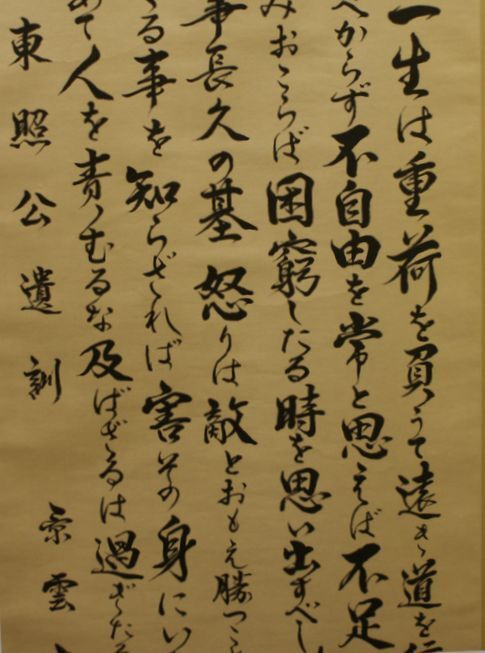 一生は重荷を負うて遠き道を行
べからず不自由を常と思えば不足
みおこらば困窮したる時を思い出すべし
事長久の基怒りは敵とおもえ勝つこ
る事を知らざれば害その身にい
めて人を責むるな及ばざるは過ぎたる
東照公遺訓
雲